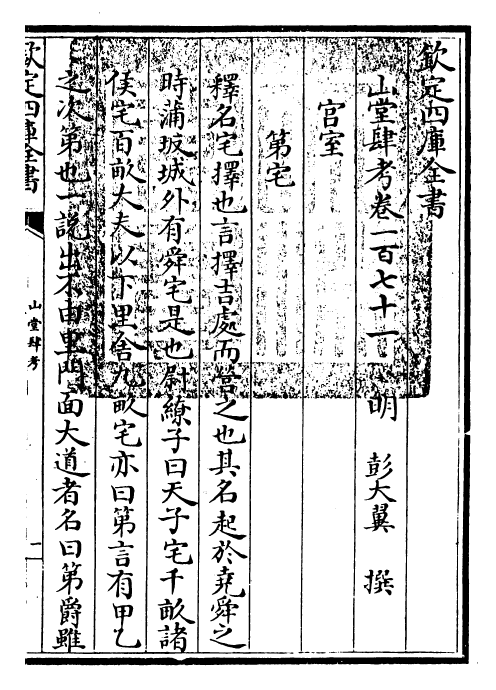 欽定四庫全書
山堂肆考卷一百七十一
明 彭大翼 撰
宫室
第宅
釋名宅擇也言擇吉處而營之也其名起於堯舜之
時蒲坂城外有舜宅是也尉繚子曰天子宅千畝諸
侯宅百畝大夫以下里舍九畝宅亦曰第言有甲乙
之次第也一說出不由里門面大道者名曰第爵雖
欽定四庫全書
山堂肆考